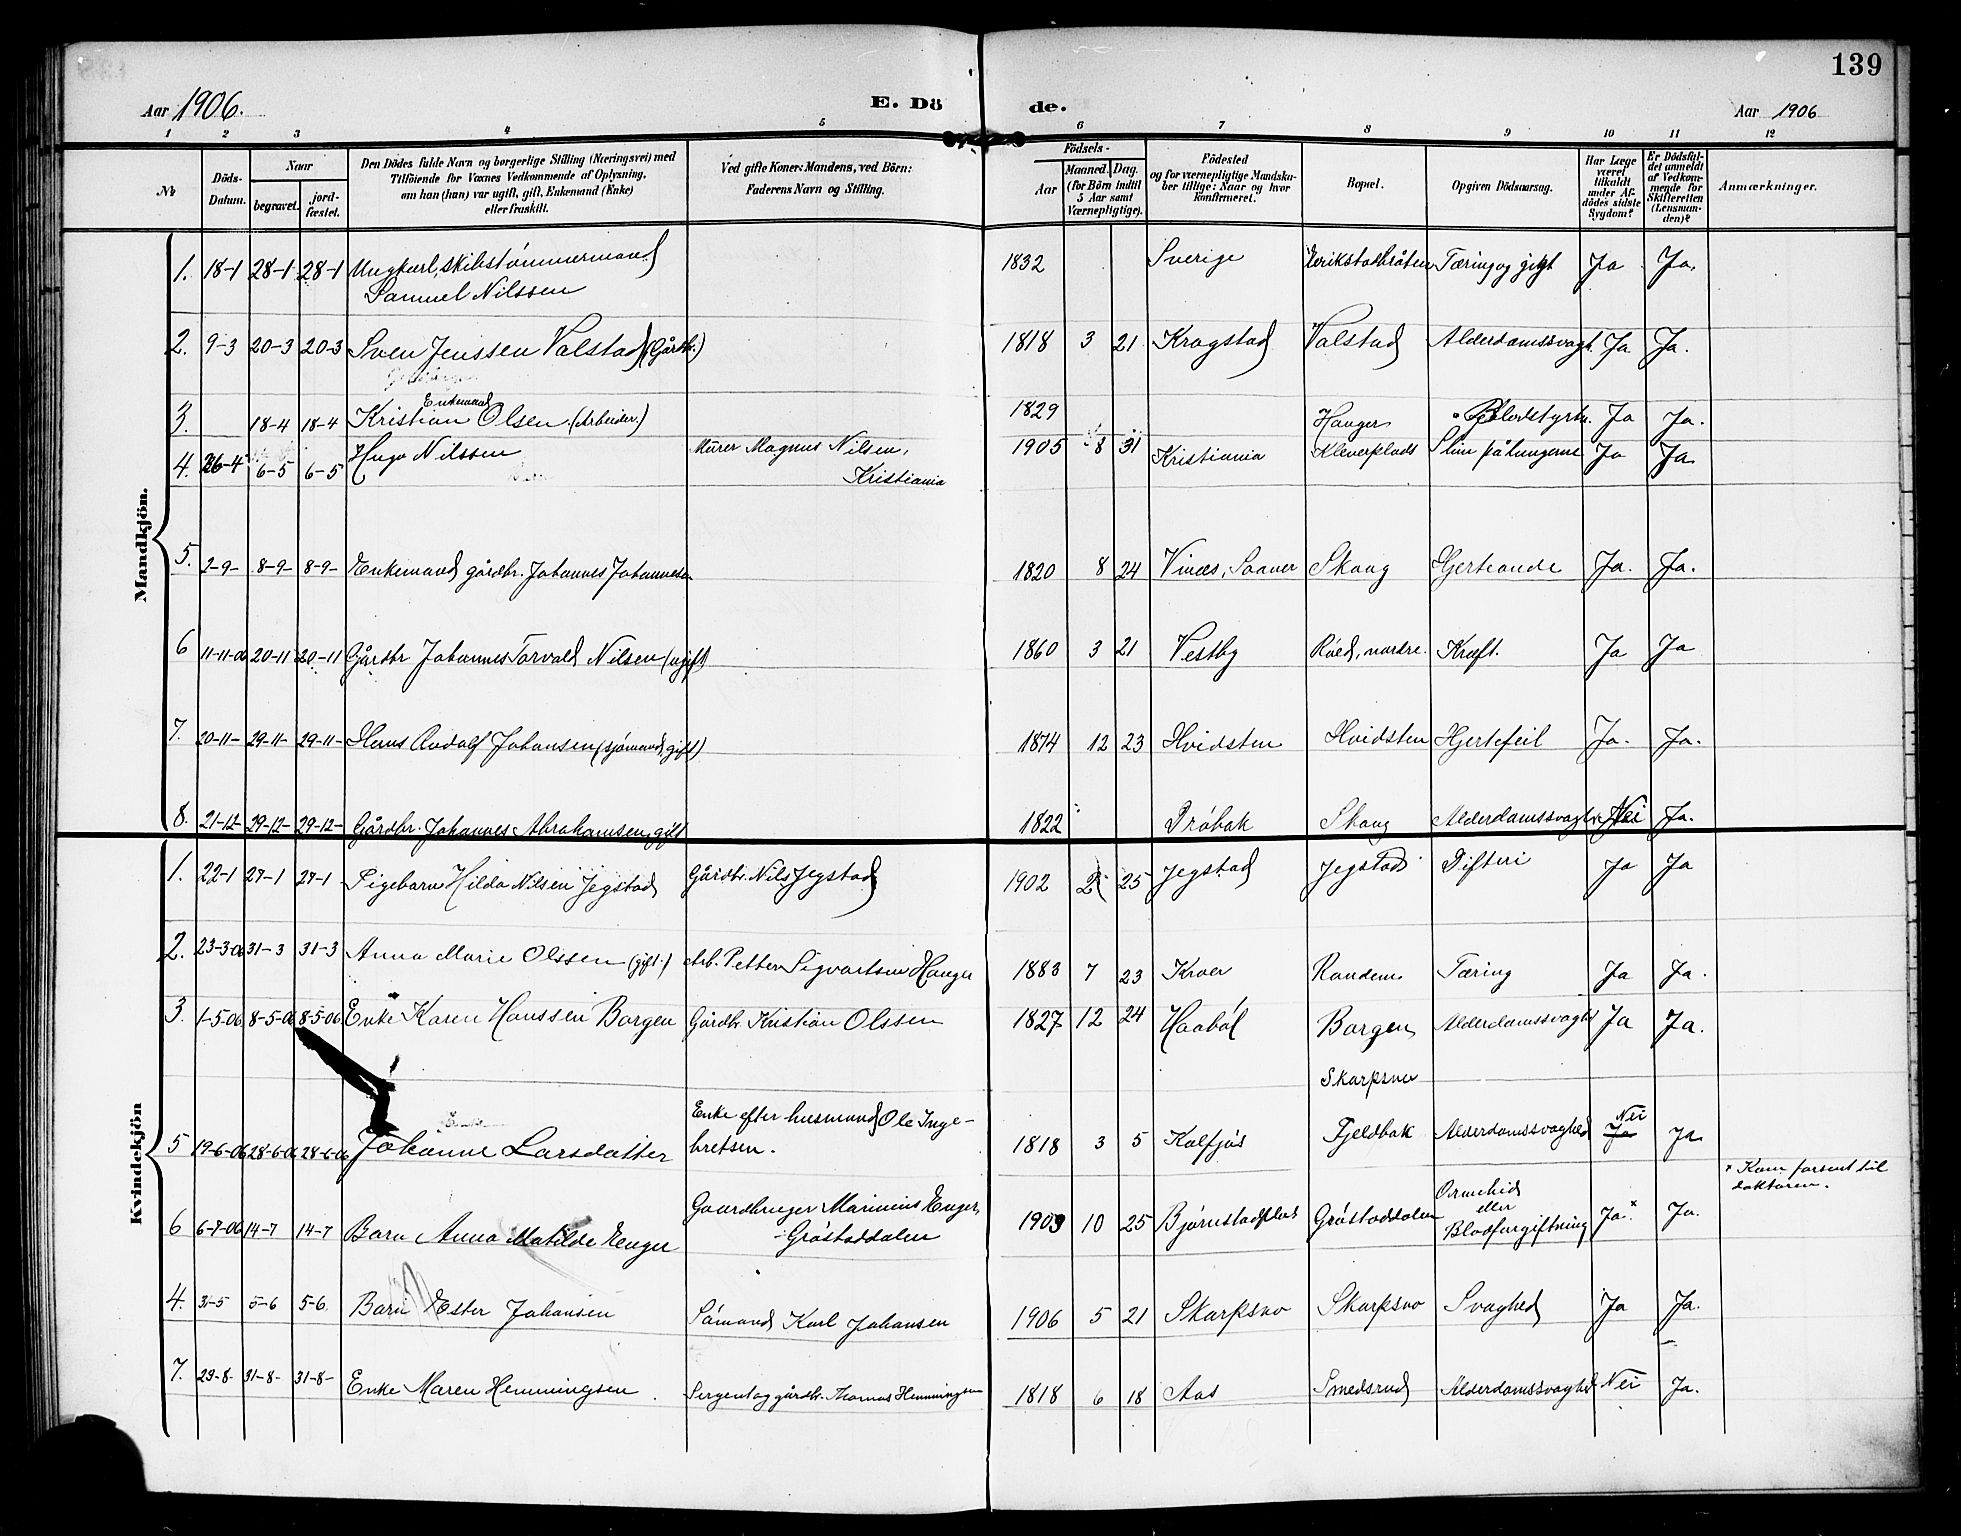 139
Aar 1906. E. Dö de. Aar 1906
1 2 3 4 5 6 7 8 9 10 11 12
№ Döds-Datum. Naar begravet. jordfæstet. Den Dödes fulde Navn og borgerlige Stilling (Næringsvei) med Tilföiende for Voxnes Vedkommende af Oplysning, om han (hun) var ugift, gift, Enkemand (Enke) eller fraskilt. Ved gifte Koner: Mandens, ved Börn: Faderens Navn og Stilling. Födsels- Aar Maaned. Dag. (for Börn indtil 5 Aar samt Værnepligtige). Födested og for værnepligtige Mandskaber tillige: Naar og hvor konfirmeret. Bopæl. Opgiven Dödsaarsag. Har Læge været tilkaldt under Afdödes sidste Sygdom? Er Dödsfaldet anmeldt af Vedkommende for Skifteretten (Lensmanden)? Anmærkninger.
Mandkjön.
1. 18-1 28-1 28-1 Ungkarl, skibstømmermand Samuel Nilssen 1832 Sverige Tæring og gigt Ja Ja.
2. 9-3 20-3 20-3 Sven Jenssen Valstad (Gårdbr.) 1818 3 21 Krogstad Valstad Alderdomssvagh. Ja Ja.
3. 18-4 18-4 Enkemand Kristian Olsen (Arbeider.) 1829 Hauger Blodstyrtn. Ja Ja.
4. 26-4 6-5 6-5 Hugo Nilssen Murer Magnus Nilsen, Kristiania 1905 8 31 Kristiania Kleverplads Slim på lungerne Ja Ja
5. 2-9- 8-9- 8-9- Enkemand gårdbr. Johannes Johannesen 1820 8 24 Vinæs, Saaner Skoug Hjerteonde Ja. Ja.
6 11-11-06 20-11 20-11 Gårdbr Johannes Torvald Nilsen (ugift) 1860 3 21 Vestby Röed, nordre. Kræft. Ja Ja
7. 20-11- 29-11- 29-11- Hans Rudolf Johansen (sjømand, gift) 1874 12 23 Hvidsten Hvidsten Hjertefeil Ja. Ja.
8. 21-12- 29-12- 29-12- Gårdbr. Johannes Abrahamsen, gift 1822 Dröbak Skoug Alderdomssvaghed Nei Ja.
Kvindekjön
1. 22-1 27-1 27-1 Pigebarn Hilda Nilsen Jegstad Gårdbr. Nils Jegstad 1902 2 25 Jegstad Jegstad Difteri Ja Ja
2. 23-3-06 31-3 31-3 Anna Marie Olssen (gift.) Arb. Petter Sigvartsen Hauger 1883 7 23 Kroer Randem Tæring Ja Ja.
3. 1-5-06 8-5-06 8-5-06 Enke Karen Hanssen Borgen Gårdbr. Kristian Olssen 1827 12 24 Haaböl Borgen Alderdomssvaghed Ja Ja.
Skarpsno
5 19-6-06 28-6-06 28-6-06 Johanne Larsdatter Enke efter husmand Ole Ingebretsen. 1818 3 5 Kolfjös Fjeldbak Alderdomssvaghed Nei Ja Ja
6 6-7-06 14-7 14-7 Barn Anna Matilde Enger Gaardbruger Marinius Enger, Gröstaddalen 1903 10 25 Bjørnstadplads Gröstaddalen Ormebid eller Blodforgiftning Ja.* Ja. * Kom forsent til doktoren.
4. 31-5 5-6 5-6. Barn Ester Johansen Sömand Karl Johansen 1906 5 21 Skarpsno Skarpsno Svaghed Ja Ja.
7. 23-8- 31-8- 31-8- Enke Maren Hemmingsen. Sergent og gårdbr. Thomas Hemmingsen 1818 6 18 Aas Smedsrud Alderdomssvaghed Nei Ja.